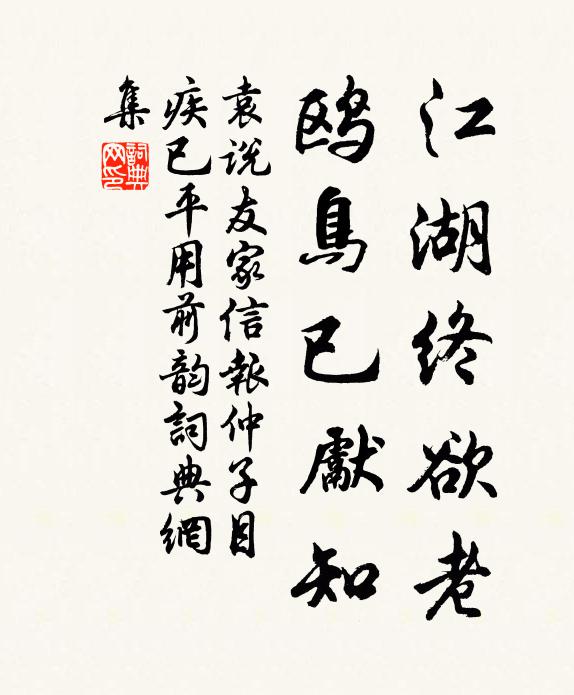 江湖終欲老
鷗鳥已獻知
袁說友家信報仲子目
疾已平用前韵詞典網
集
詞典網印